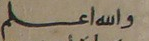 والله اعلم